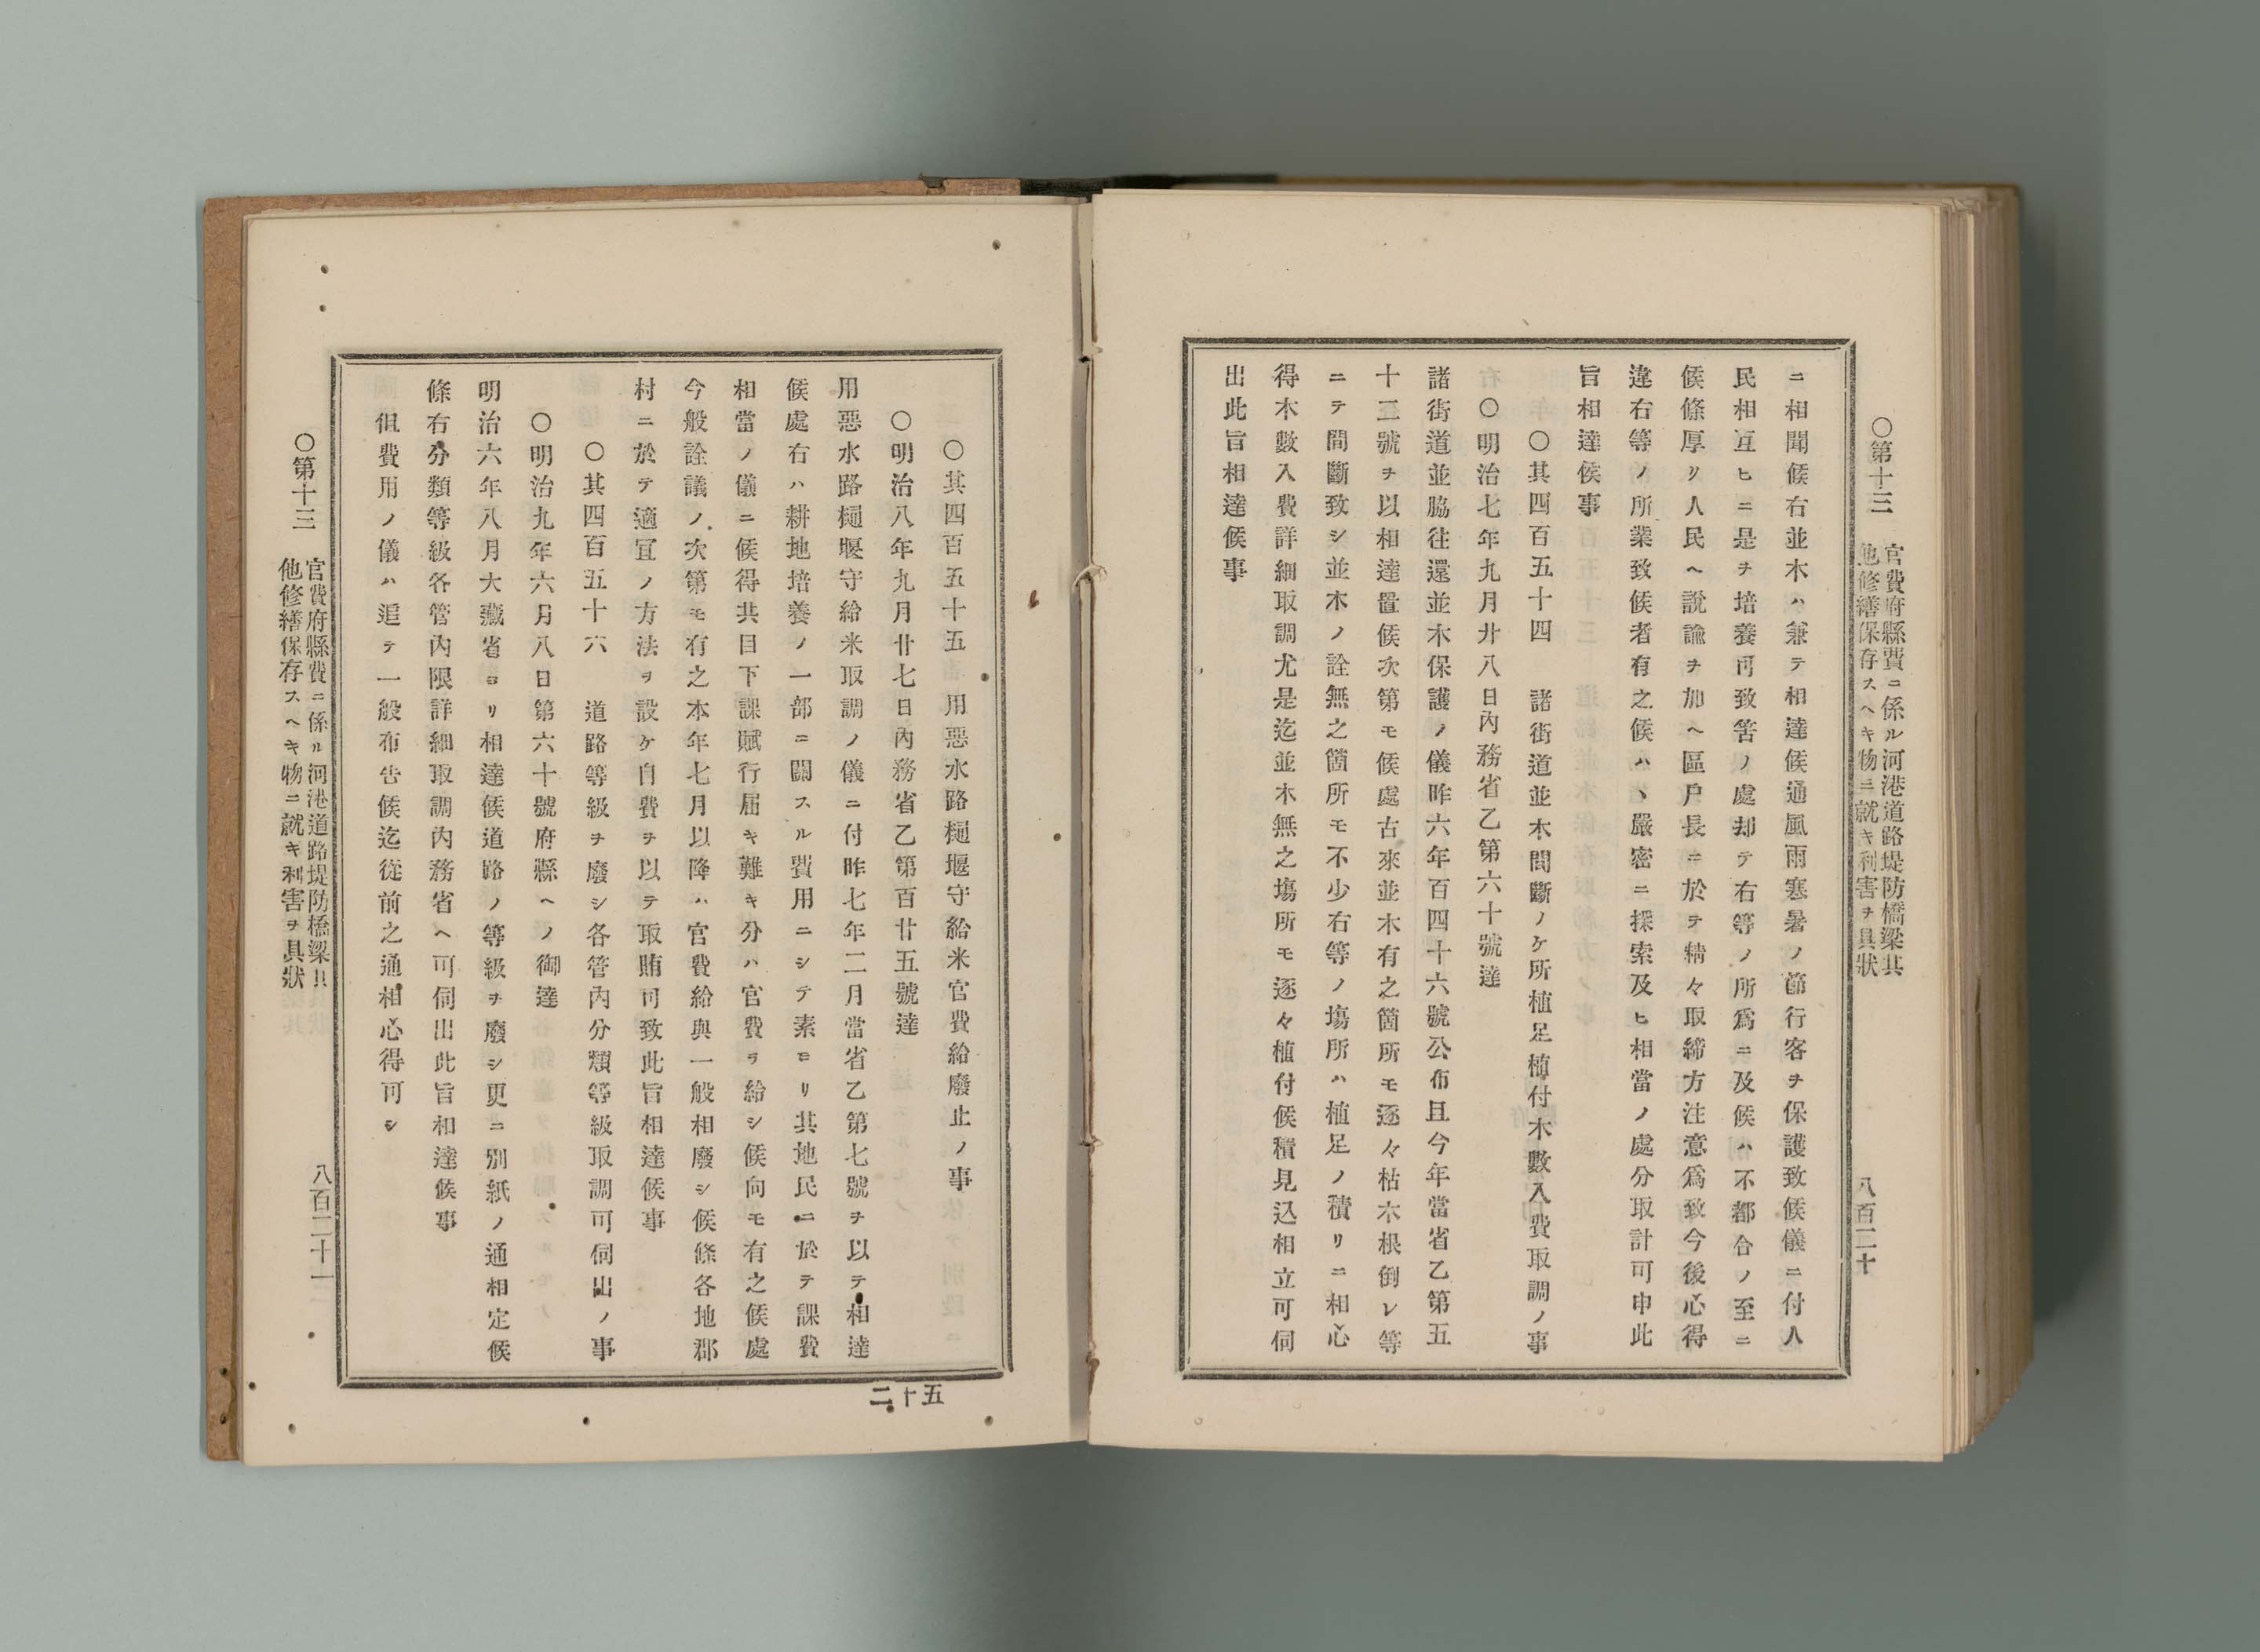 ○第十三 官費府縣費ニ係ル河港道路堤防橋梁其
他修繕保存スヘキ物ニ就キ利害ヲ具狀
八百二十
ニ相聞候右並木ハ兼テ相達候通風雨寒暑ノ節行客ヲ保護致候儀ニ付人
民相互ヒニ是ヲ培養可致筈ノ處却テ右等ノ所爲ニ及候ハ不都合ノ至ニ
候條厚リ人民ヘ說諭ヲ加ヘ區戶長ニ於テ精々取締方注意爲致今後心得
違右等ノ所業致候者有之候ハヽ嚴密ニ探索及ヒ相當ノ處分取計可申此
旨相達候事
○其四百五十四 諸街道並木間斷ノケ所植足植付木數入費取調ノ事
○明治七年九月廿八日內務省乙第六十號達
諸街道並脇往還並木保護ノ儀昨六年百四十六號公布且今年當省乙第五
十三號ヲ以相達置候次第モ候處古來並木有之箇所モ逐々枯木根倒レ等
ニテ間斷致シ並木ノ詮無之箇所モ不少右等ノ塲所ハ植足ノ積リニ相心
得木數入費詳細取調尤是迄並木無之塲所モ逐々植付候積見込相立可伺
出此旨相達候事
○其四百五十五 用惡水路樋堰守給米官費給廢止ノ事
○明治八年九月廿七日內務省乙第百廿五號達
用惡水路樋堰守給米取調ノ儀ニ付昨七年二月當省乙第七號ヲ以テ相達
候處右ハ耕地培養ノ一部ニ關スル費用ニシテ素ヨリ其地民ニ於テ課費
相當ノ儀ニ候得共目下課賦行届キ難キ分ハ官費ヲ給シ候向モ有之候處
今般詮議ノ次第モ有之本年七月以降ハ官費給與一般相廢シ候條各地郡
村ニ於テ適宜ノ方法ヲ設ケ自費ヲ以テ取賄可致此旨相達候事
○其四百五十六 道路等級ヲ廢シ各管內分類等級取調可伺出ノ事
○明治九年六月八日第六十號府縣ヘノ御達
明治六年八月大藏省ヨリ相達候道路ノ等級ヲ廢シ更ニ別紙ノ通相定候
條右分類等級各管內限詳細取調內務省ヘ可伺出此旨相達候事
但費用ノ儀ハ追テ一般布告候迄從前之通相心得可シ
○第十三 官費府縣費ニ係ル河港道路堤防橋梁其
他修繕保存スヘキ物ニ就キ利害ヲ具狀
八百二十一
五十二